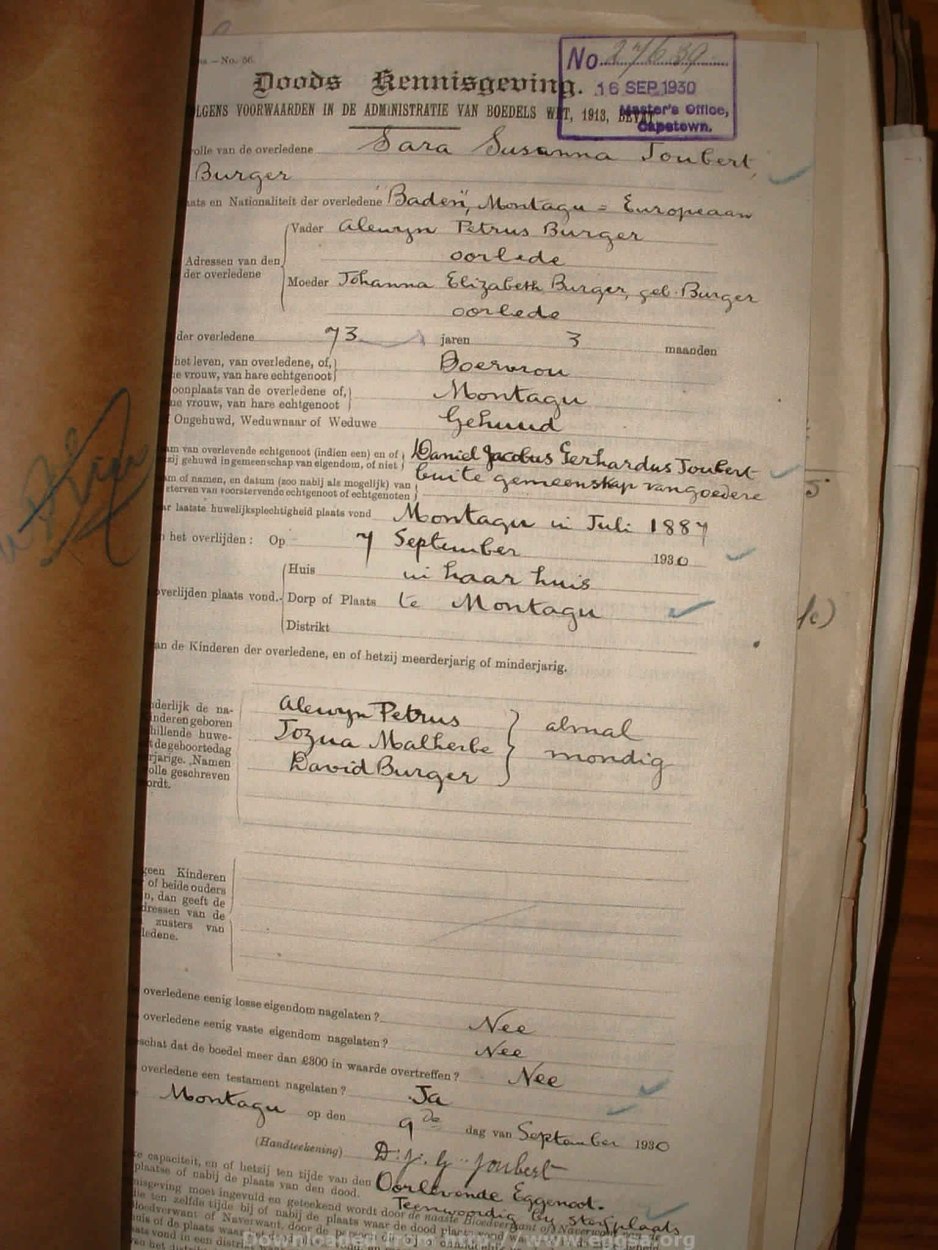 No. 56.
No. 27639
16 SEP 1930
Master's Office,
Capetown.
Doods Kennisgeving.
VOORWAARDEN IN DE ADMINISTRATIE VAN BOEDELS WET, 1913, BEVAT.
van de overledene Sara Susanna Joubert,
Burger
en Nationaliteit der overledene "Baden", Montagu = Europeaan
Vader Alewyn Petrus Burger
oorlede
Adressen van den
der overledene
Moeder Johanna Elizabeth Burger, geb. Burger
oorlede
der overledene 73 jaren 3 maanden
het leven, van overledene, of,
vrouw, van hare echtgenoot
Boervrou
van de overledene of,
vrouw, van hare echtgenoot
Montagu
Ongehuwd, Weduwnaar of Weduwe Gehuud
van overlevende echtgenoot (indien een) en of
gehuwd in gemeenschap van eigendom, of niet
Daniel Jacobus Gerhardus Joubert
of namen, en datum (zoo nabij als mogelijk) van
van voorstervende echtgenoot of echtgenoten
buite gemeenskap van goedere
laatste huwelijksplechtigheid plaats vond Montagu in Juli 1887
het overlijden: Op 7 September 1930
Huis in haar huis
plaats vond. Dorp of Plaats te Montagu
Distrikt
de Kinderen der overledene, en of hetzij meerderjarig of minderjarig.
de na-
geboren
huwe-
Namen
geschreven
Alewyn Petrus
Jozua Malherbe
David Burger
almal
mondig
geen Kinderen
of beide ouders
dan geeft de
van de
zusters van
overledene eenig losse eigendom nagelaten? Nee
overledene eenig vaste eigendom nagelaten? Nee
dat de boedel meer dan £300 in waarde overtreffen? Nee
overledene een testament nagelaten? Ja
Montagu op den 9de dag van September 1930
(Handteekening) D. J. G. Joubert
capaciteit, en of hetzij ten tijde van den
plaatse of nabij de plaats van den dood.
Oorlevende Eggenoot.
Teenwoordig by sterfplaats
moet ingevuld en geteekend wordt door de naaste Bloedverwant of
ten zelfde tijde bij of nabij de plaats waar de dood
of Naverwant, door de
Downloaded from http://www.eggsa.org